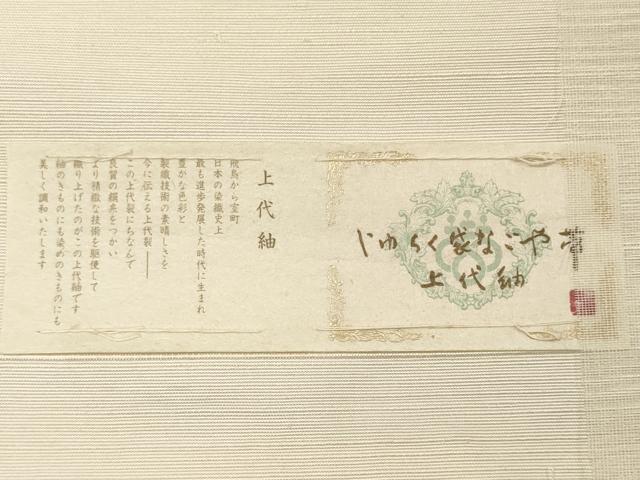 じゆらく袋なごや帯
上代紬
上代紬
飛鳥から室町
日本の染織史上
最も進歩発展した時代に生まれ
豊かな色彩と
製織技術の素晴しさを
今に伝える上代裂――
この上代裂にちなんで
良質の絹糸をつかい
より精緻な技術を駆使して
織り上げたのがこの上代紬です
紬のきものにも染めのきものにも
美しく調和いたします